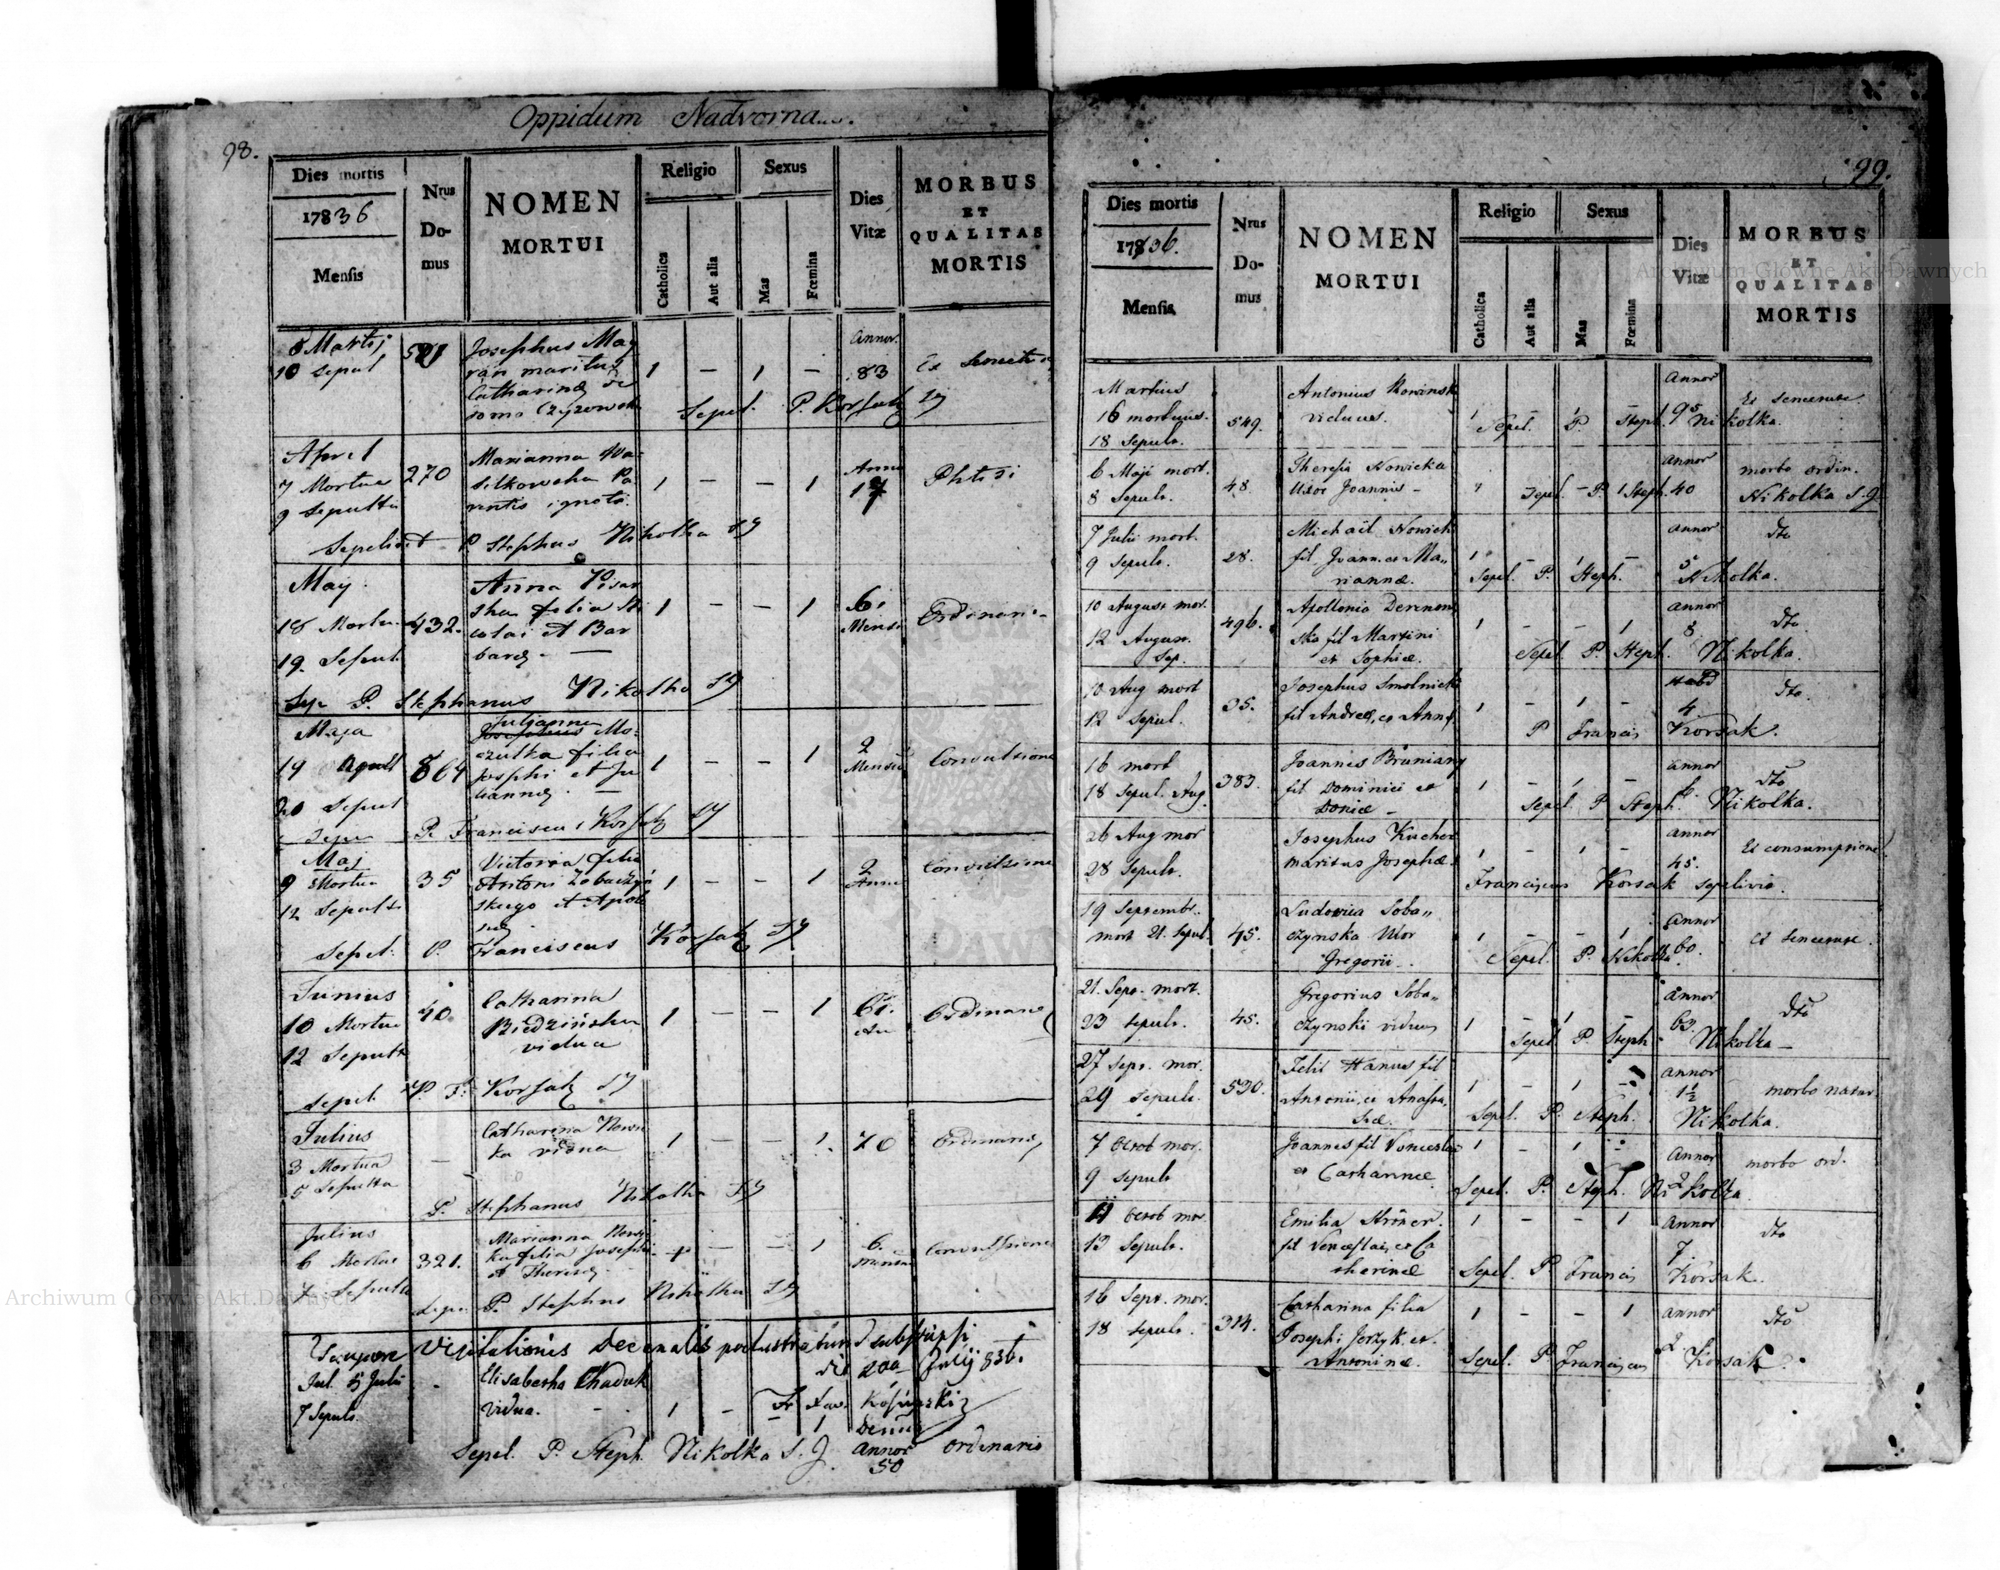 Oppidum Nadvorna
98.
Dies mortis
17836
Mensis
Nrus Domus
NOMEN MORTUI
Religio
Catholica
Aut alia
Sexus
Mas
Fœmina
Dies Vitæ
MORBUS ET QUALITAS MORTIS
8 Martij
10 sepul
Josephus May
ran maritus
Catharinæ de
domo
1 — 1 —
Annor.
83
Sepel. P. Korsak SJ
April
7 Mortua
9 Sepulta
270
Marianna
Parentis ignoti
1 — — 1
Phtisi
Sepelivit P Stephus Nikolka SJ
May
18 Mortu
19. Sepult
432.
Anna Pisar
ska filia Ni
colai et Bar
baræ
1 — — 1
6
Mens
Ordinari
Sep P. Stephanus Nikolka SJ
Maja
19
20 Sepult
564
Julianna
Mo
czulka filia
Josephi et Ju
liannæ
1 — — 1
2
Mensiu
Convulsione
Sepe P. Franciscus Korsak SJ
Maj
9 Mortua
12 Sepulta
35
Victoria filia
Antoni
skiego et Apol
1 — — 1
2
Anno
Convulsione
Sepel. P. Franciscus Korsak SJ
Junius
10 Mortua
12 Sepulta
40
Catharina
Biedzińska
vidua
1 — — 1
Ordinarie
Sepel. P. F. Korsak SJ
Julius
3 Mortua
5 Sepulta
—
Catharina Nowic
ka vidua
1 — — 1
70
Ordinarie
P. Stephanus Nikolka SJ
Julius
6 Mortua
7 Sepulta
321.
Marianna Nowic
ka filia Josephi
et Theresæ
— — 1
6.
Convulsione
Sepe P. Stephus Nikolka SJ
Tempore Visitationis Decanalis perlustratum subscripsi
die 20a Julij 836.
Jul. 5 Julii
7 Sepult.
Elisabetha
vidua.
1 —
1
Annor
50
ordinario
Sepel. P. Steph. Nikolka S. J.
99.
Dies mortis
17836.
Mensis
Nrus Domus
NOMEN MORTUI
Religio
Catholica
Aut alia
Sexus
Mas
Fœmina
Dies Vitæ
MORBUS ET QUALITAS MORTIS
Martius
16 mortuus.
18 Sepult.
549.
Antonius Rowinsk
viduus.
Annor
95
Ex senectute.
Sepel P. Steph. Nikolka.
6 Maji mort.
8 Sepult.
48
Theresia Nowicka
Uxor Joannis —
Annor
40
morbo ordin.
Sepel. P. Steph. Nikolka S. J.
7 Julii mort.
9 Sepult.
28.
Michaël Nowick
fil Joann. et Ma„
riannæ.
annor
5
dto
Sepel P. Steph. Nikolka.
10 August mor.
12 August.
Sep.
496.
Apollonia
ska fil Martini
et Sophiæ.
1 — — 1
annor
8
dto.
Sepel P. Steph. Nikolka.
10 Aug mort
12 Sepul.
35.
Josephus Smolnick
fil Andreæ, et Annæ
1 — 1 —
4
dto.
P Francis Korsak.
16 mort
18 Sepul. Aug.
383.
Joannes
fil Dominici et
1 — 1 —
annor
6.
dto
Sepel P Steph Nikolka.
26 Aug mor
28 Sepult.
Josephus
maritus Josephæ
1 — 1 —
annor
45.
Ex consumptione
Franciscus Korsak sepelivit.
19 Septemb.
mort 21. Sepul.
45.
Ludovica Soba„
czynska Uxor
Gregorii.
1 — — 1
annor
60.
ex senectute.
Sepel. P. Nikolka
21. Sept. mort.
23 Sepult.
45.
Gregorius Soba„
czynski viduus
1 — 1 —
annor
63.
dto
Sepel P Steph Nikolka —
27 Sept. mor.
29 Sepult.
530.
Felix Hanus fil
Antonii, et Anasta„
siæ.
1 — 1 —
annor
1½
morbo natur.
Sepel. P. Steph. Nikolka.
7 Octob mor.
9 Sepult
Joannes fil Venceslai
et Catharinæ.
1 — 1 —
annor
2
morbo ord.
Sepel. P. Steph. Nikolka
11 Octob mor.
13 Sepult.
Emilia
fil Venceslai, et Ca
tharinæ
1 — — 1
Annor
7.
dto
Sepel. P Francis Korsak.
16 Sept. mor.
18 Sepult.
314.
Catharina filia
Josephi Jerzyk et
Antoninæ.
1 — — 1
annor
2
dto
Sepel. P Franciscus Korsak.
Archiwum Główne Akt Dawnych
Archiwum Główne Akt Dawnych